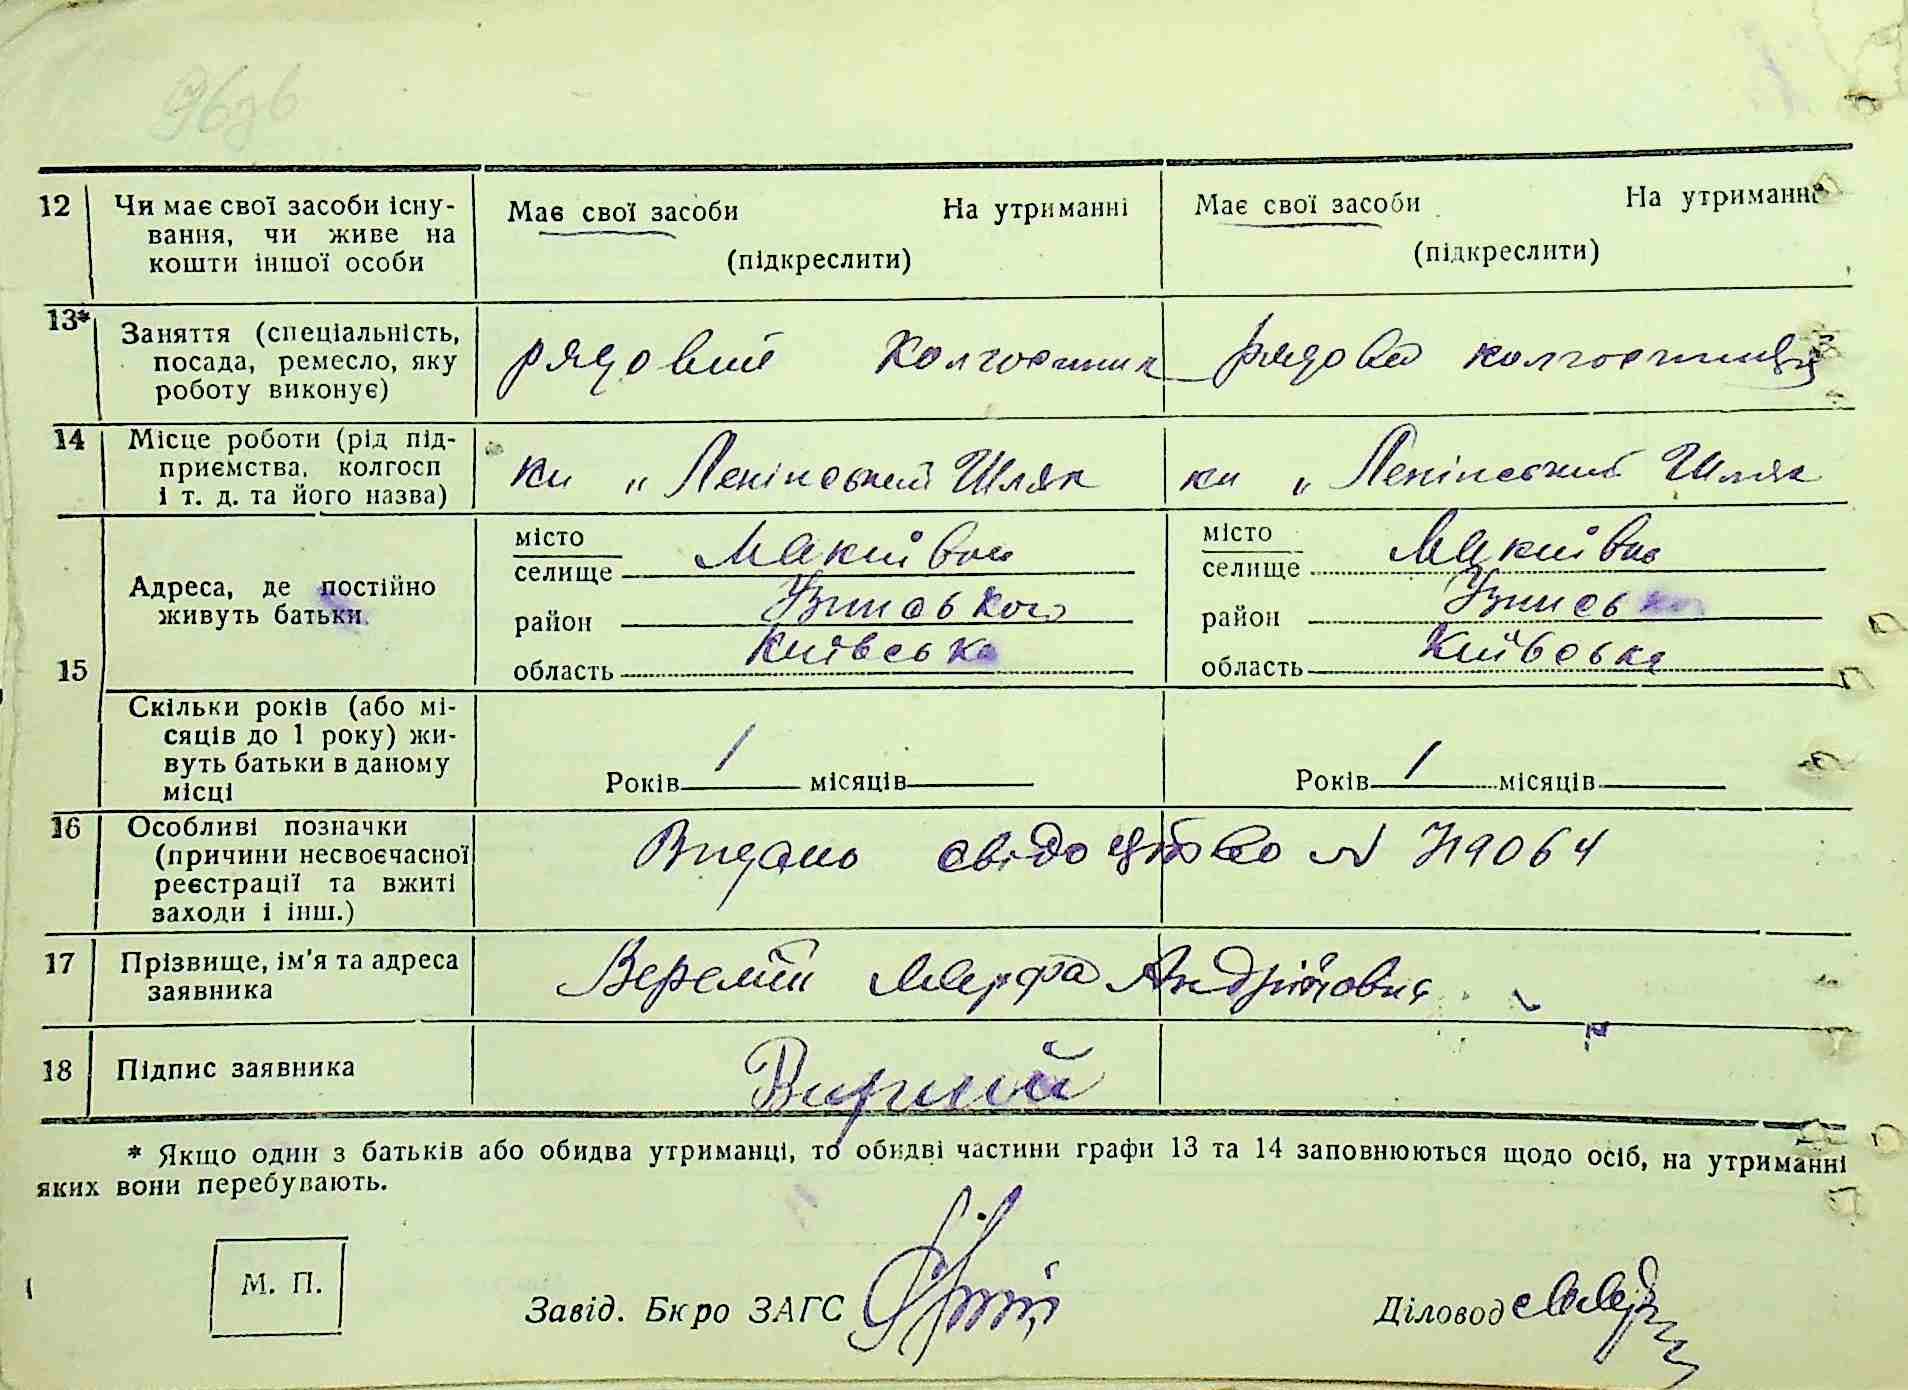 12 Чи має свої засоби існу- Має свої засоби На утриманні Має свої засоби На утриманні
вання, чи живе на
кошти іншої особи (підкреслити) (підкреслити)
13* Заняття (спеціальність,
посада, ремесло, яку рядовий колгоспник рядова колгоспниця
роботу виконує)
14 Місце роботи (рід під-
приємства, колгосп ки „Ленінський Шлях ки „Ленінський Шлях
і т. д. та його назва)
15 Адреса, де постійно
живуть батьки
місто
селище Макиївка
район Узинського
область Київська
місто
селище Макиївка
район Узинсько
область Київська
Скільки років (або мі-
сяців до 1 року) жи-
вуть батьки в даному
місці
Років 1 місяців Років 1 місяців
16 Особливі позначки
(причини несвоєчасної Видано свідоцтво №
реєстрації та вжиті
заходи і інш.)
17 Прізвище, ім'я та адреса Веремій Марфа Андріївна
заявника
18 Підпис заявника
* Якщо один з батьків або обидва утриманці, то обидві частини графи 13 та 14 заповнюються щодо осіб, на утриманні
яких вони перебувають.
М. П.
Завід. Бюро ЗАГС Діловод